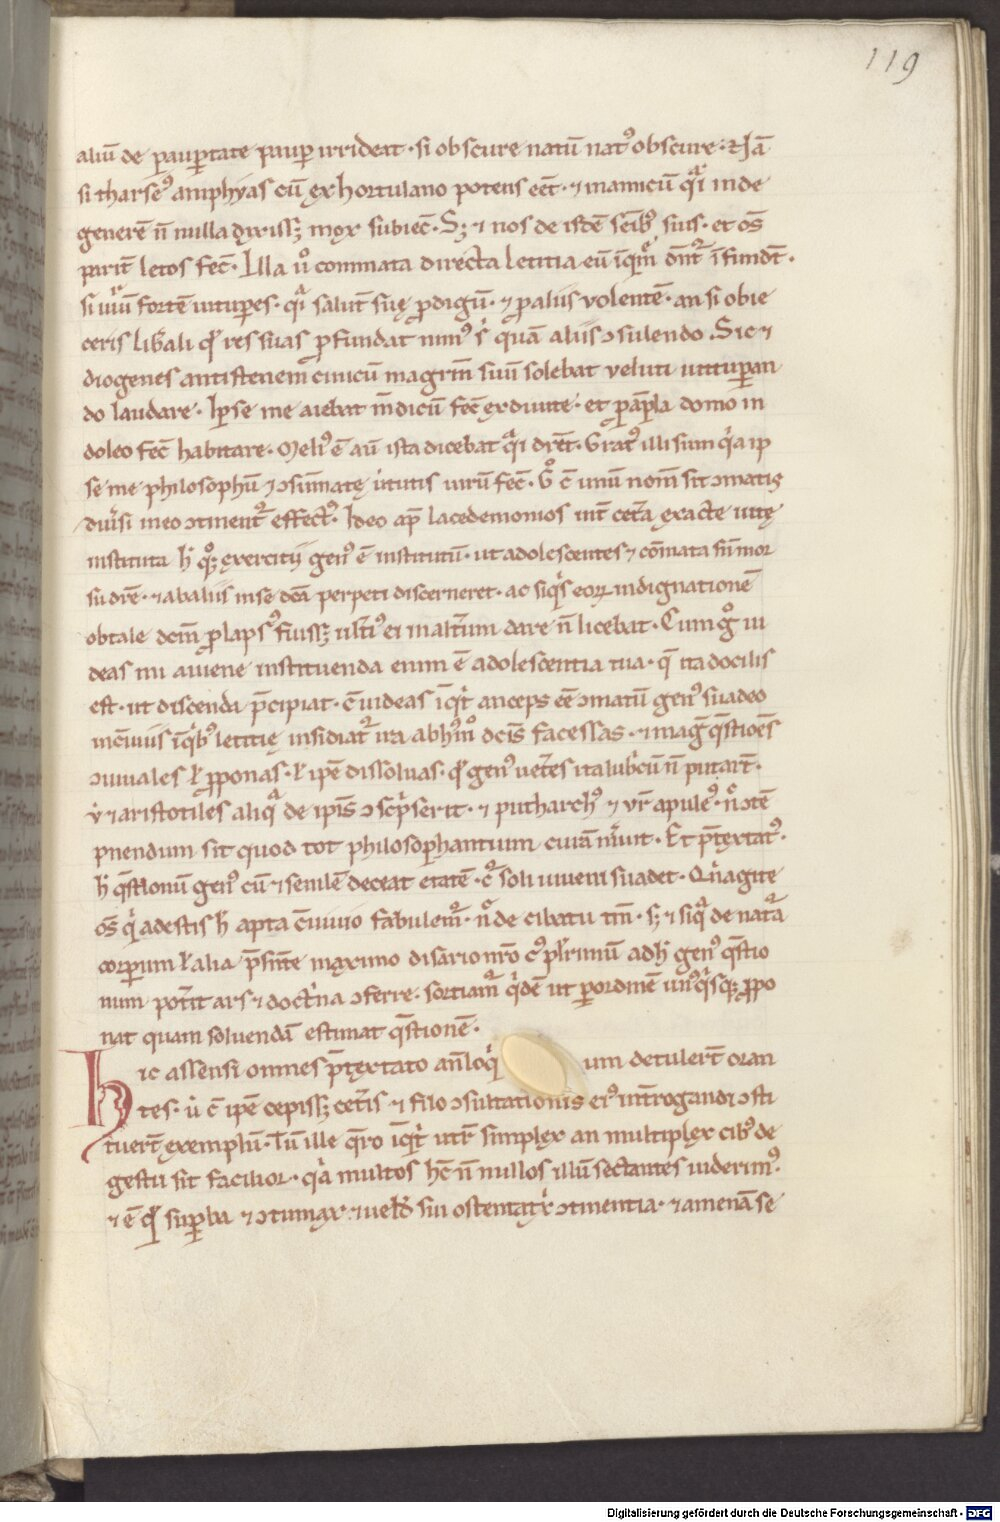 119
aliū de paup̄tate paup irrideat · si obscure natū nat᷒ obscure · Nā
si tharse᷒ amphyas cū ex hortulano potens eēt · ⁊ in amicū q̄i in de
generē n̄ nulla dixiss; mox subiec̄ · S; ⁊ nos de isdē seīb᷒ sum᷒ · et os̄
parit̄ letos fec̄ · Illa u͛o commata directa letitia eū in quē dnt͛ īfundt̄ ·
si uirū fortē uitupes · q̄i salut̄ suę p̱digū · ⁊ p̱ aliis uolentē · an si obie
ceris lib̄ali qd̄ res suas p̱fundat nim᷒ s͛ quā aliis ↄsulendo Sic ⁊
diogenes antistenem cinicū magrm̄ suū solebat veluti uitup̱an
do laudare · Ipse me aiebat m̄dicū fec̄ ex diuite · et p̱ ampla domo in
doleo fec̄ habitare · Meli᷒ ē aū ista dicebat q̄i dr̄et · Grat᷒ illi sum q͛a ip
se me philosophū ⁊ ↄsumatę u͛tutis uirū fec̄ · G͛ c̄ unū nom̄ sit ↄmatis
diu͛si in eo ↄtinent͛ effect᷒ · Ideo ap̄ lacedemonios int̄ cet͛a exacte uitę
instituta h̄ q̊; exercitii gen᷒ ē institutū · ut adolescentes ⁊ cōmata sn̄ mor
su dr̄e · ⁊ ab aliis in se dc̄a perpeti discerneret · ac siq͛s eoꝝ indignationē
ob tale dcm̄ p̱laps᷒ fuiss; ult͛i᷒ ei in alt͛um dare n̄ licebat · Cum g͛ ui
deas mi auiene instituenda enim ē adolescentia tua · q̄ ita docilis
est · ut discenda p̄cipiat · c̄ uideas īq͛t anceps eē ↄmatū gen᷒ suadeo
in c̄uiuiis īq͛b᷒ letitię insidiat͛ ira ab h᷒mōi dcīs facessas · ⁊ mag᷒ q̄stioēs
ↄuiuales ł p̱ponas · ł ipē dissoluas · qd̄ gen᷒ uet͛es ita lub͛cū n̄ putart̄ ·
ut ⁊ aristotiles aliq̄ de ipīs ↄsc͛pserit · ⁊ putharch᷒ ⁊ vr̄ apule᷒ · n̊ ↄtē
pnendum sit quod tot philosophantium curiā m͛uit · Et p̄textat᷒ ·
h̄ q̄stionū gen᷒ cū ⁊ senilē deceat etatē · c͛ soli iuueni suadet · Q͛n agite
os̄ q͛ adestis h̄ apta c̄uiuio fabulem͛ · n̊ de cibatu tm̄ · s; ⁊ siq̄ de nat͛a
corp̱um ł alia p̄sn̄te maximo disario nr̄o c᷒ pl͛rimū ad h̄ gen᷒ q̄stio
num pot͛it ars ⁊ doct͛na ↄferre · sortiam͛ q͛dē ut p̱ ordinē un᷒q͛sq; p̱po
nat quam soluendā estimat q̄stionē ·
Hic assensi omnes p̄textato an̄loq͛ um detulert̄ oran
tes · u͛ c̄ ipē cepiss; cet͛is ⁊ filo ↄsultationis ei᷒ int̄rogandi ↄsti
tuert̄ exemplū · Tū ille q̄ro īq͛t utr̄ simplex an multiplex cib᷒ de
gestu sit facilior · q͛a multos hc̄ n̄ nullos illū sectantes uiderim᷒ ·
⁊ ē qd̄ sup̱ba ⁊ ↄtumax ⁊ uelut sui ostentat͛x ↄtinentia · ⁊ amenā se
Digitalisierung gefördert durch die Deutsche Forschungsgemeinschaft - DFG